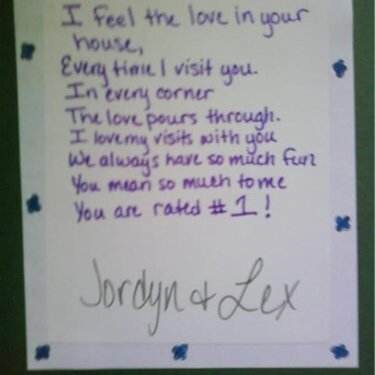 I feel the love in your
house,
Every time I visit you.
In every corner
The love pours through.
I love my visits with you
We always have so much fun
You mean so much to me
You are rated #1!
Jordyn + Lex